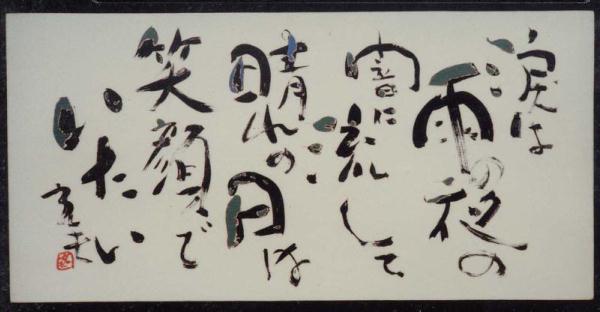 涙は
雨の夜の
闇に流して
晴れの日は
笑顔で
いたい